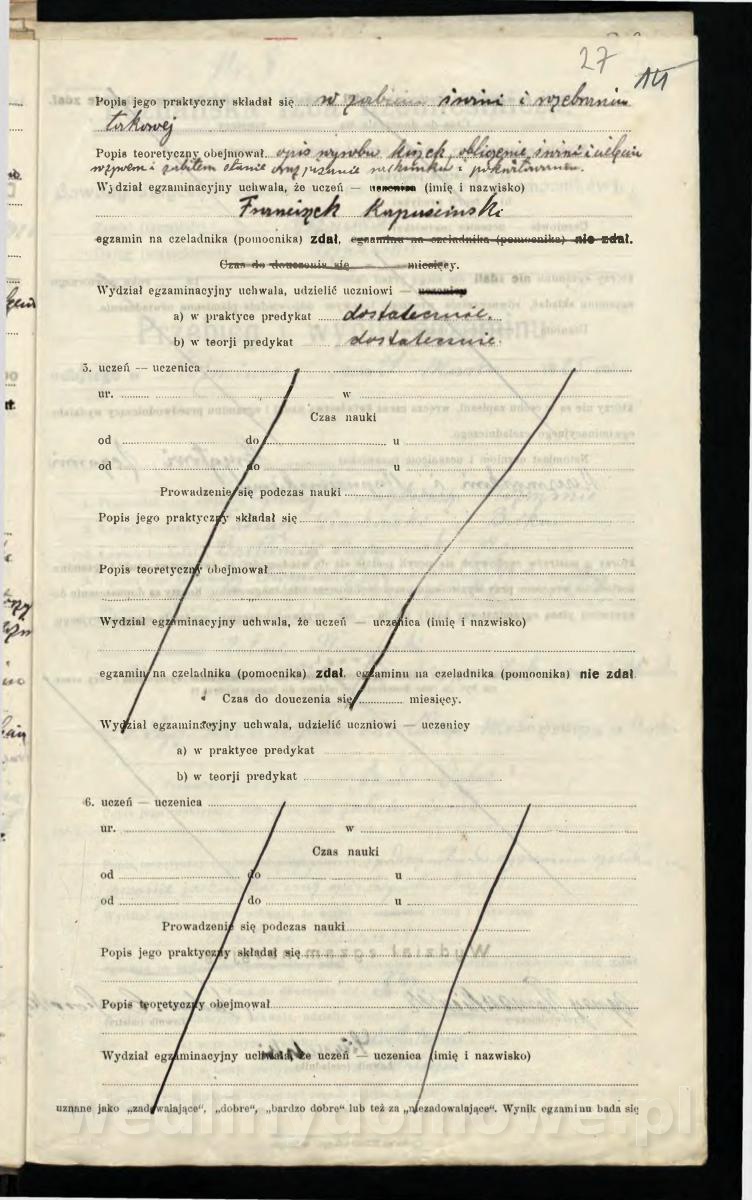 27
Popis jego praktyczny składał się w zabiciu świni i rozebraniu
takowej
Popis teoretyczny obejmował opis wyrobu kiszek, obliczenie świni i cielęcia
w żywem i zabitem stanie oraz pisanie rachunku i pokwitowania.
Wydział egzaminacyjny uchwala, że uczeń — uczenica (imię i nazwisko)
Franciszek Kapuściński
egzamin na czeladnika (pomocnika) zdał, egzaminu na czeladnika (pomocnika) nie zdał.
Czas do douczenia się miesięcy.
Wydział egzaminacyjny uchwala, udzielić uczniowi — uczenicy
a) w praktyce predykat dostatecznie.
b) w teorji predykat dostatecznie.
5. uczeń — uczenica
ur. w
Czas nauki
od do u
od do u
Prowadzenie się podczas nauki
Popis jego praktyczny składał się
Popis teoretyczny obejmował
Wydział egzaminacyjny uchwala, że uczeń — uczenica (imię i nazwisko)
egzamin na czeladnika (pomocnika) zdał, egzaminu na czeladnika (pomocnika) nie zdał
Czas do douczenia się miesięcy.
Wydział egzaminacyjny uchwala, udzielić uczniowi — uczenicy
a) w praktyce predykat
b) w teorji predykat
6. uczeń — uczenica
ur. w
Czas nauki
od do u
od do u
Prowadzenie się podczas nauki
Popis jego praktyczny składał się
Popis teoretyczny obejmował
Wydział egzaminacyjny uchwala, że uczeń — uczenica (imię i nazwisko)
uznane jako „zadowalające“, „dobre“, „bardzo dobre“ lub też za „niezadowalające“. Wynik egzaminu bada się
wedlinydomowe.pl